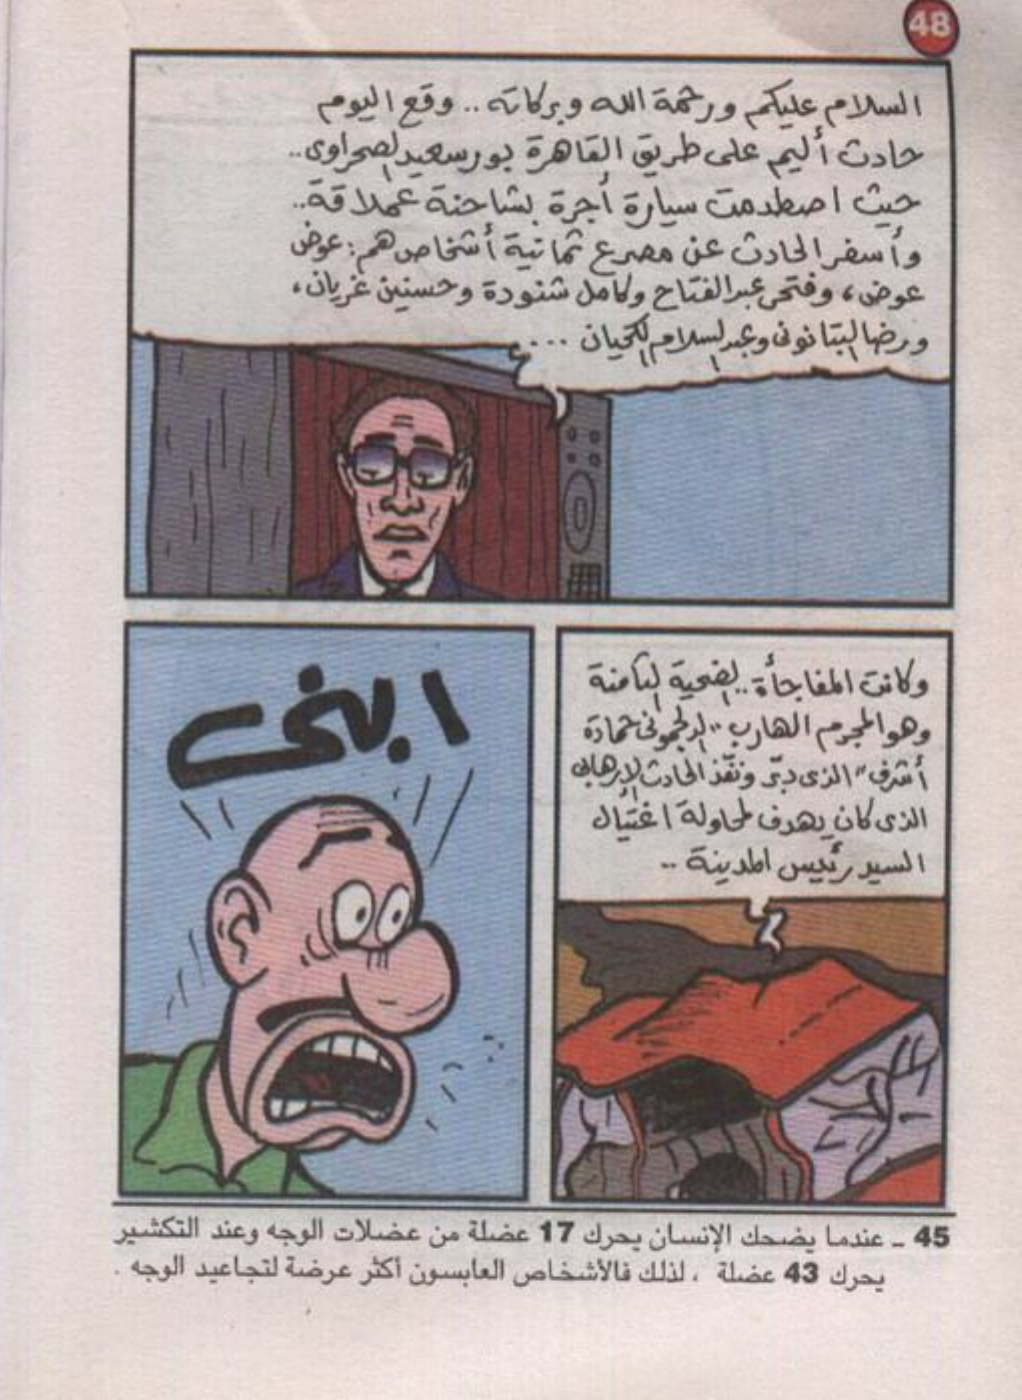 48
السلام عليكم ورحمة الله وبركاته .. وقع اليوم
حادث أليم على طريق القاهرة بورسعيد الصحراوى ..
حيث اصطدمت سيارة أجرة بشاحنة عملاقة ..
وأسفر الحادث عن مصرع ثمانية أشخاص هم : عوض
عوض ، وفتحى عبد الفتاح وكامل شنودة وحسنين غريان ،
ورضا البتانونى وعبد السلام الكحيان ...
وكانت المفاجأة .. الضحية الثامنة
وهو المجرم الهارب " حمادة
أشرف " الذى دبّر ونفّذ الحادث الإرهابى
الذى كان يهدف لمحاولة اغتيال
السيد رئيس المدينة ..
ابنى
45 ـ عندما يضحك الإنسان يحرك 17 عضلة من عضلات الوجه وعند التكشير
يحرك 43 عضلة ، لذلك فالأشخاص العابسون أكثر عرضة لتجاعيد الوجه .